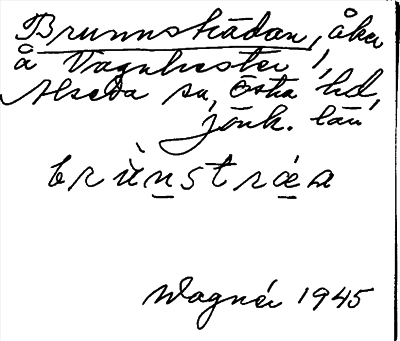 Brunnsträdan, åker
å Vagnhester 1,
Alseda sn, Östra hd,
Jönk. län
brùnstræa
Wagnér 1945